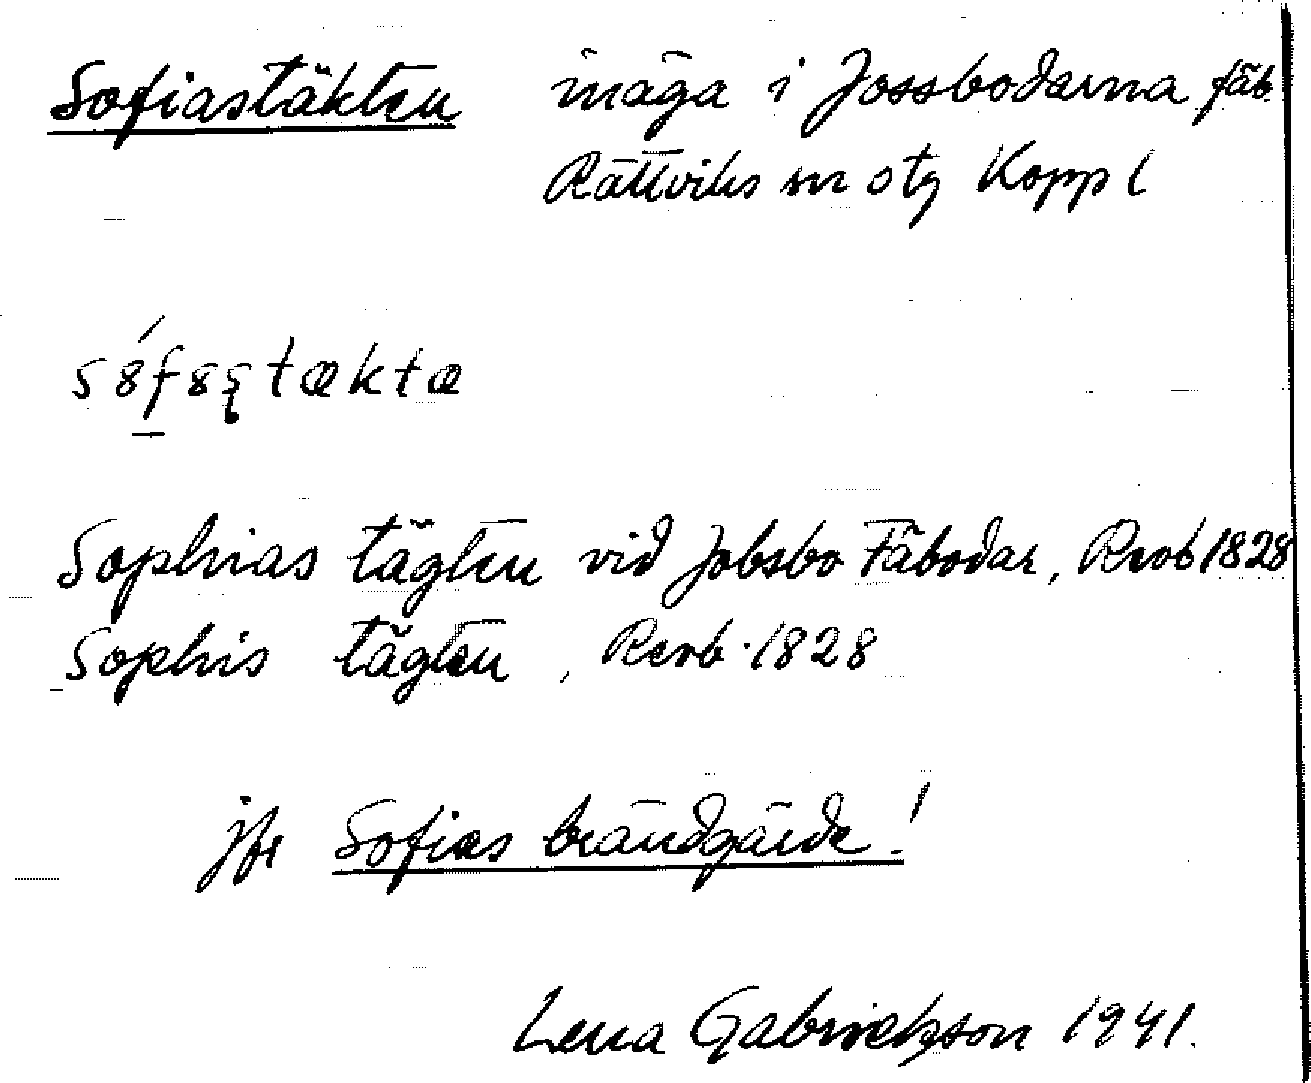 Sofiastäkten inäga i Jossbodarna fäb.
Rättviks sn o tg Koppl
Sophias tägten vid Jobsbo Fäbodar, Rvob 1828
Sophis tägten, Rvob. 1828
jfr Sofias brändgärde!
Lena Gabrielsson 1941.